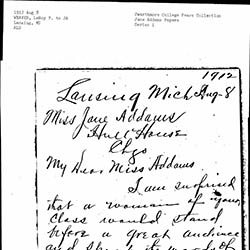 1912 Aug 8
WEAVER, LeRoy P. to JA
Lansing, MI
ALS
Swarthmore College Peace Collection
Jane Addams Papers
Series 1
1912
Lansing Mich Aug-8
Miss Jane Addams
Hull House
Chgo
My Dear Miss Addams
I am surprised
that a woman of your
class would stand
before a great audience
and